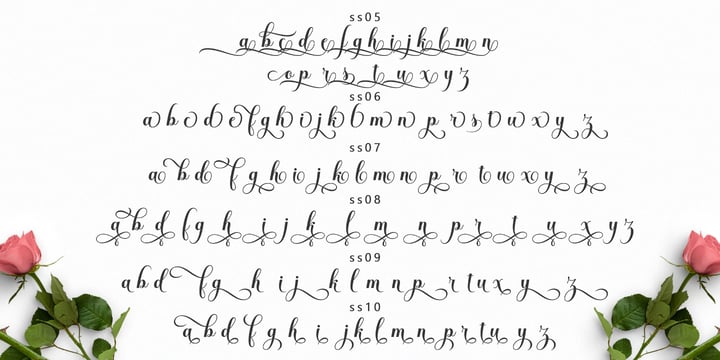 ss05
a b c d e f g h i j k l m n
o p r s t u x y z
ss06
a b o d e f g h i j k l m n p r s t w x y z
ss07
a b d f g h i j k l m n p r t u x y z
ss08
a b d f g h i j k l m n p r t u x y z
ss09
a b d f g h i j k l m n p r t u x y z
ss10
a b d f g h i j k l m n p r t u y z